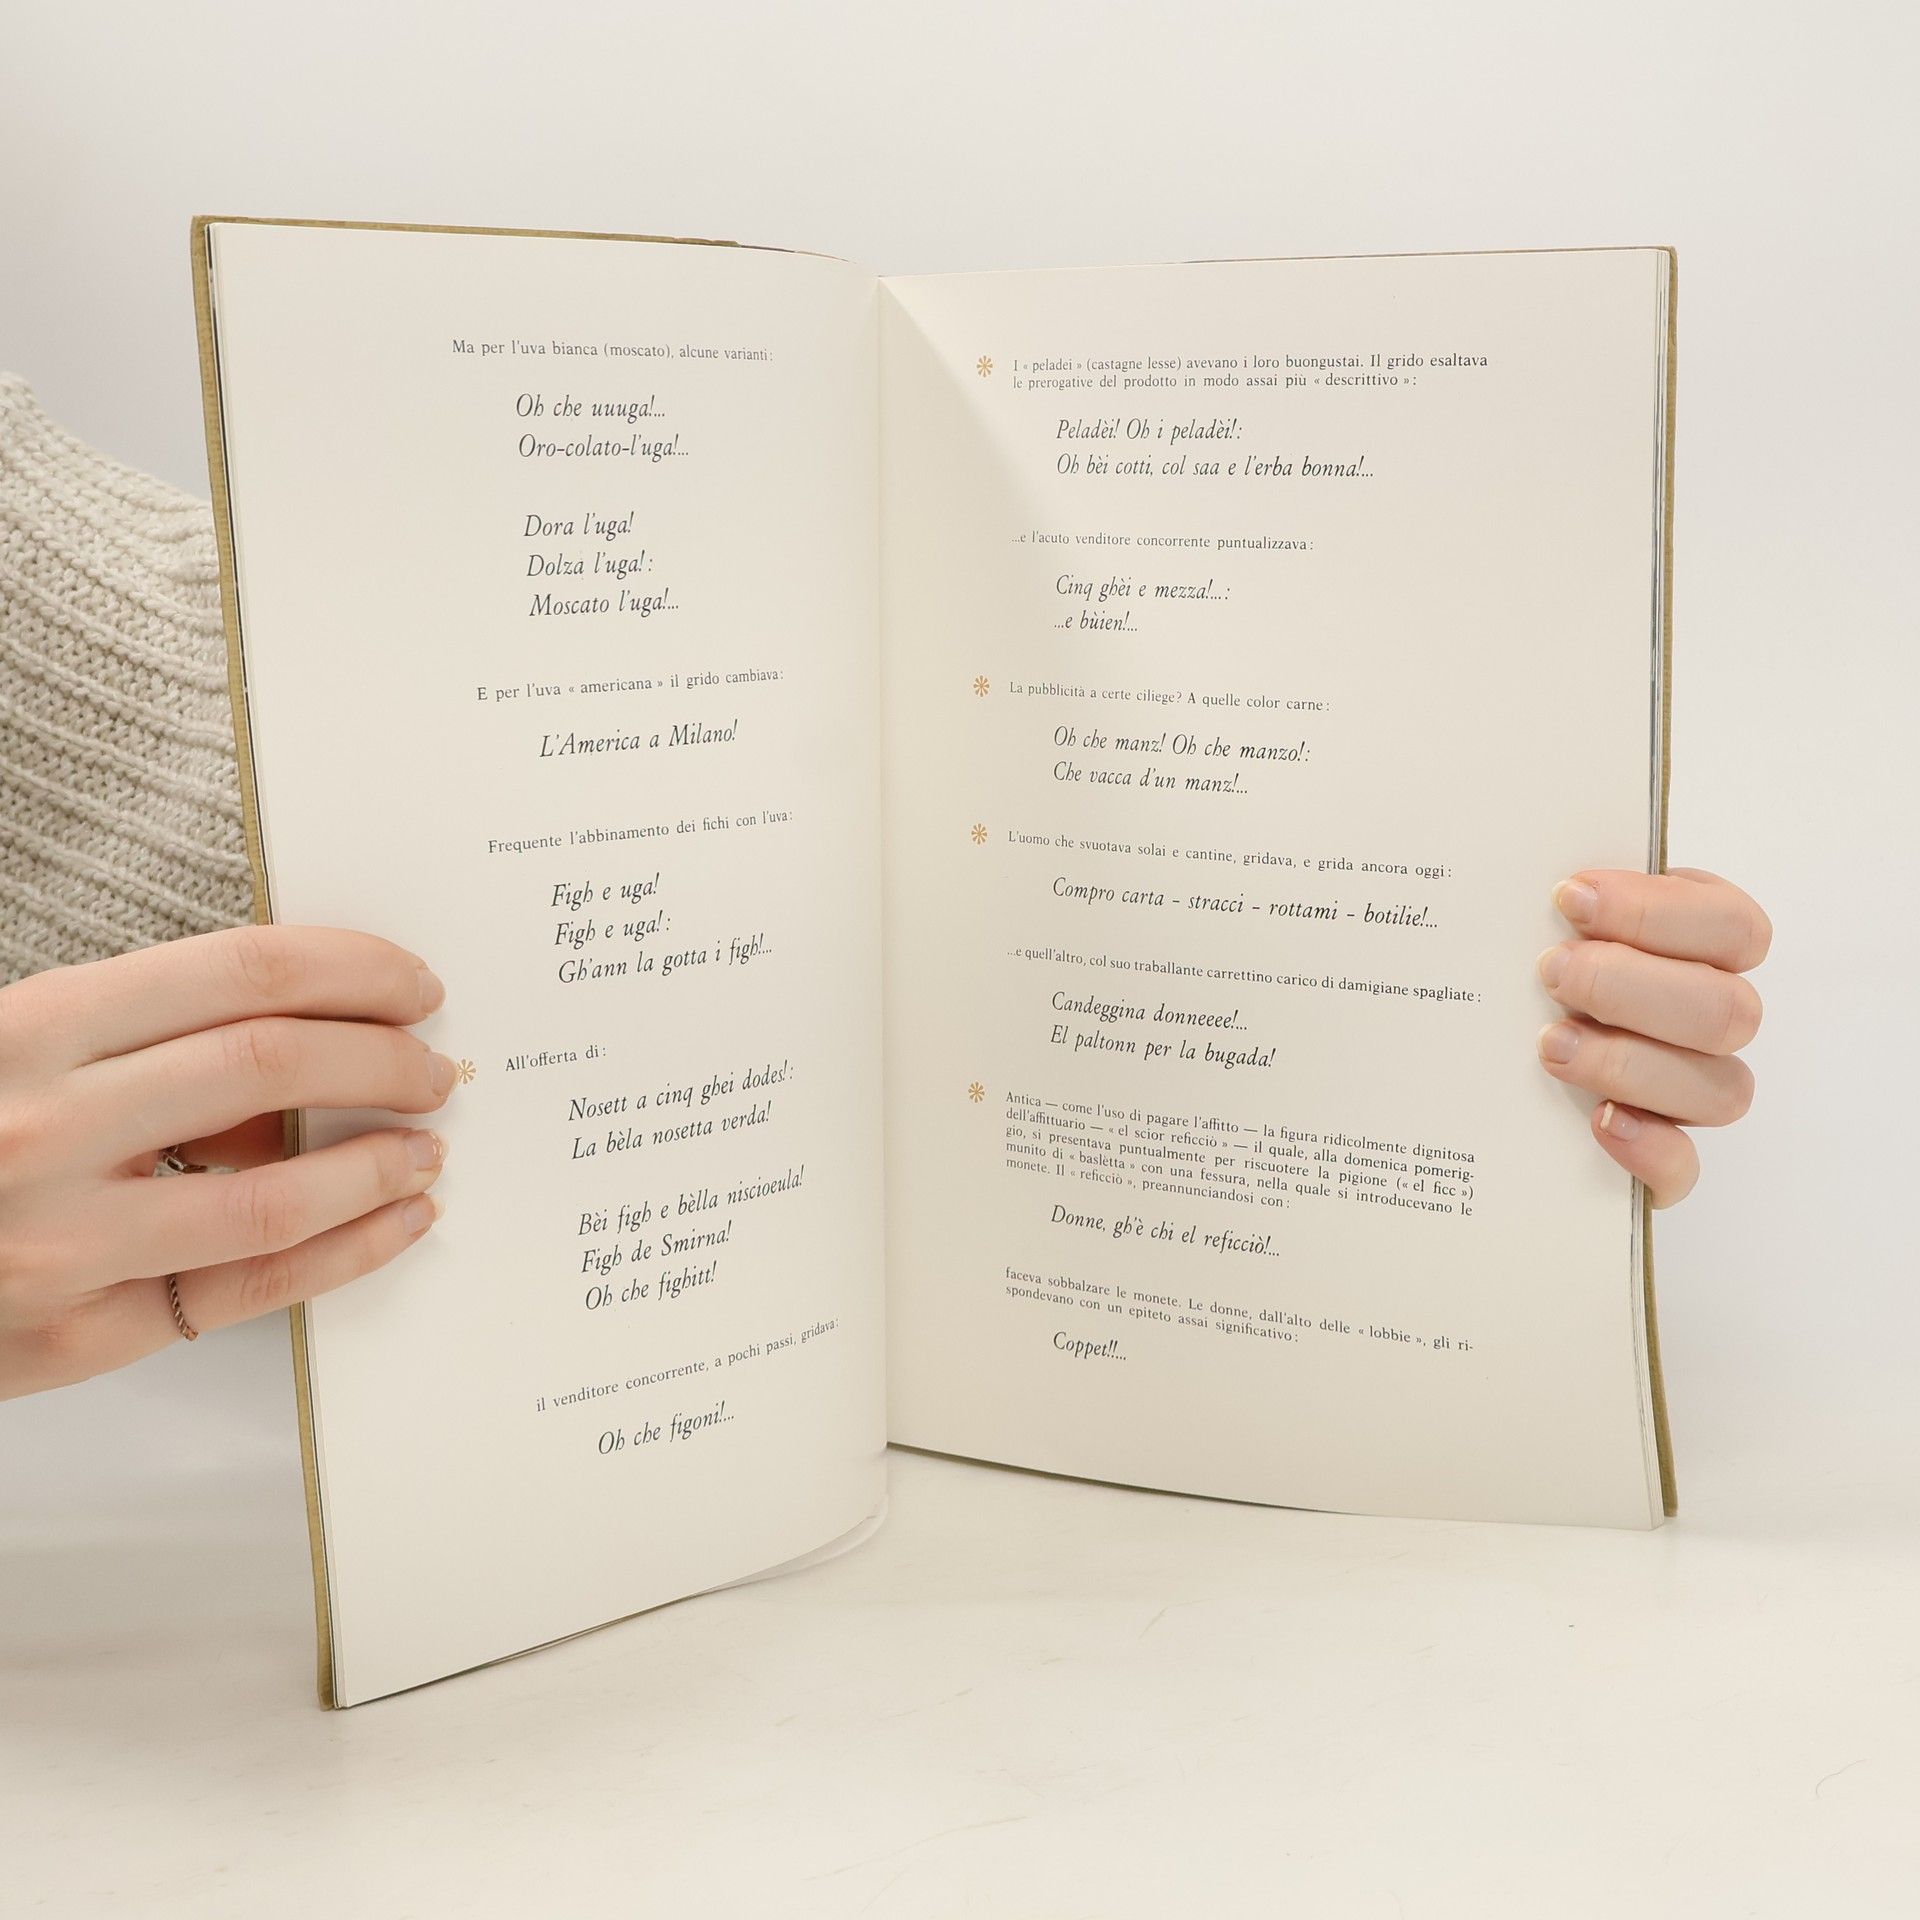 Ma per l'uva bianca (moscato), alcune varianti:
Oh che uuuga!...
Oro-colato-l'uga!...
Dora l'uga!
Dolza l'uga!:
Moscato l'uga!...
E per l'uva « americana » il grido cambiava:
L'America a Milano!
Frequente l'abbinamento dei fichi con l'uva:
Figh e uga!
Figh e uga!:
Gh'ann la gotta i figh!...
All'offerta di:
Nosett a cinq ghei dodes!:
La bèla nosetta verda!
Bèi figh e bèlla niscioeula!
Figh de Smirna!
Oh che fighitt!
il venditore concorrente, a pochi passi, gridava:
Oh che figoni!...
I « peladei » (castagne lesse) avevano i loro buongustai. Il grido esaltava
le prerogative del prodotto in modo assai più « descrittivo »:
Peladèi! Oh i peladèi!:
Oh bèi cotti, col saa e l'erba bonna!...
...e l'acuto venditore concorrente puntualizzava:
Cinq ghèi e mezza!...:
...e bùien!...
La pubblicità a certe ciliege? A quelle color carne:
Oh che manz! Oh che manzo!:
Che vacca d'un manz!...
L'uomo che svuotava solai e cantine, gridava, e grida ancora oggi:
Compro carta - stracci - rottami - botilie!...
...e quell'altro, col suo traballante carrettino carico di damigiane spagliate:
Candeggina donneeee!...
El paltonn per la bugada!
Antica — come l'uso di pagare l'affitto — la figura ridicolmente dignitosa
dell'affittuario — « el scior reficciò » — il quale, alla domenica pomerig-
gio, si presentava puntualmente per riscuotere la pigione (« el ficc »)
munito di « baslètta » con una fessura, nella quale si introducevano le
monete. Il « reficciò », preannunciandosi con:
Donne, gh'è chi el reficciò!...
faceva sobbalzare le monete. Le donne, dall'alto delle « lobbie », gli ri-
spondevano con un epiteto assai significativo:
Coppet!!...